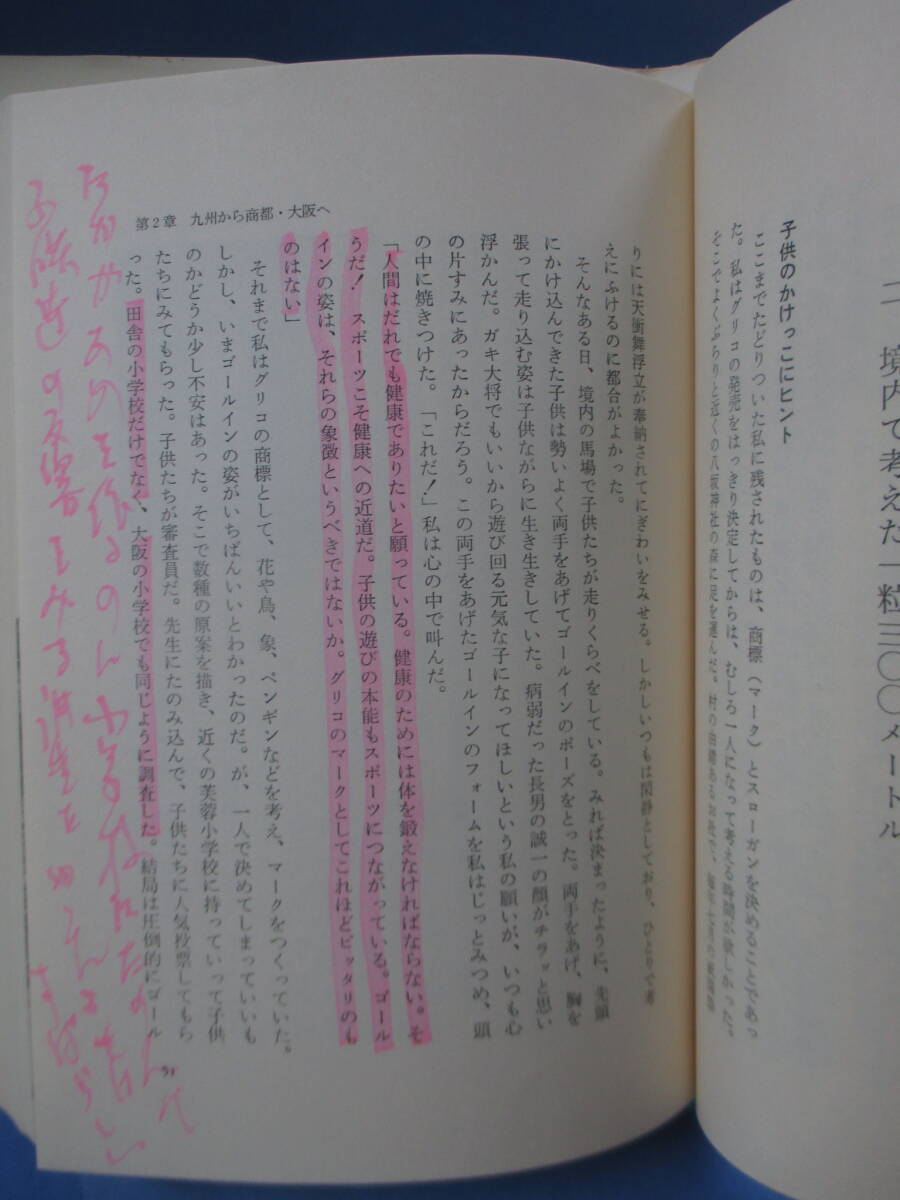 二 境内で考えた一粒三〇〇メートル
子供のかけっこにヒント
ここまでたどりついた私に残されたものは、商標（マーク）とスローガンを決めることであっ
た。私はグリコの発売をはっきり決定してからは、むしろ一人になって考える時間が欲しかった。
そこでよくぶらりと近くの八坂神社の森に足を運んだ。村の由緒あるお社で、
りには天衝舞浮立が奉納されてにぎわいをみせる。しかしいつもは閑静としており、ひとりで考
えにふけるのに都合がよかった。
そんなある日、境内の馬場で子供たちが走りくらべをしている。みれば決まったように、先頭
にかけ込んできた子供は勢いよく両手をあげてゴールインのポーズをとった。両手をあげ、胸を
張って走り込む姿は子供ながらに生き生きしていた。病弱だった長男の誠一の顔がチラッと思い
浮かんだ。ガキ大将でもいいから遊び回る元気な子になってほしいという私の願いが、いつも心
の片すみにあったからだろう。この両手をあげたゴールインのフォームを私はじっとみつめ、頭
の中に焼きつけた。「これだ！」私は心の中で叫んだ。
「人間はだれでも健康でありたいと願っている。健康のためには体を鍛えなければならない。そ
うだ！　スポーツこそ健康への近道だ。子供の遊びの本能もスポーツにつながっている。ゴール
インの姿は、それらの象徴というべきではないか。グリコのマークとしてこれほどピッタリのも
のはない」
それまで私はグリコの商標として、花や鳥、象、ペンギンなどを考え、マークをつくっていた。
しかし、いまゴールインの姿がいちばんいいとわかったのだ。が、一人で決めてしまっていいも
のかどうか少し不安はあった。そこで数種の原案を描き、近くの芙蓉小学校に持っていって子供
たちにみてもらった。子供たちが審査員だ。先生にたのみ込んで、子供たちに人気投票してもら
った。田舎の小学校だけでなく、大阪の小学校でも同じように調査した。結局は圧倒的にゴール
第2章　九州から商都・大阪へ
51